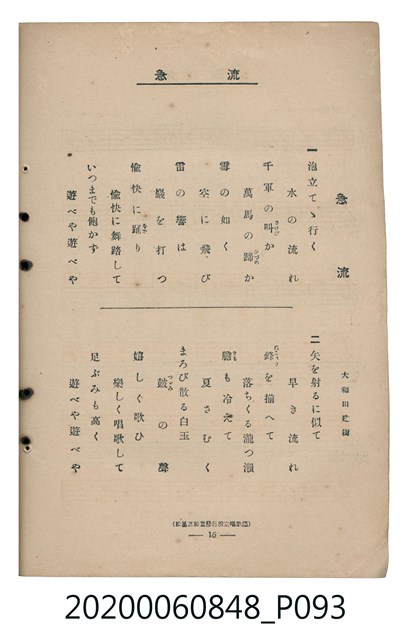 急流
急流
大和田建樹
一 泡立てゝ行く
水の流れ
千軍の叫か
萬馬の蹄か
雪の如く
空に飛び
雷の響は
巖を打つ
愉快に踊り
愉快に舞踏して
いつまでも飽かず
遊べや遊べや
二 矢を射るに似て
早き流れ
鋒を揃へて
落ちくる瀧つ瀬
膽も冷えて
夏さむく
まろび散る白玉
鼓の聲
嬉しく歌ひ
樂しく唱歌して
足ぶみも高く
遊べや遊べや
— 15 —
20200060848_P093